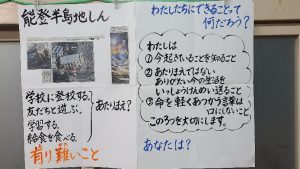 能登半島地しん
学校に登校する。
友だちと遊ぶ。
学習する。
給食を食べる。
あたりまえ?
有り難いこと
わたしたちにできることって
何だろう?
わたしは
①今起きていることを知ること
②あたりまえではない
ありがたい今の生活を
いっしょうけんめい送ること
③命を軽くあつかう言葉は
口にしないこと
この3つを大切にします。
あなたは?